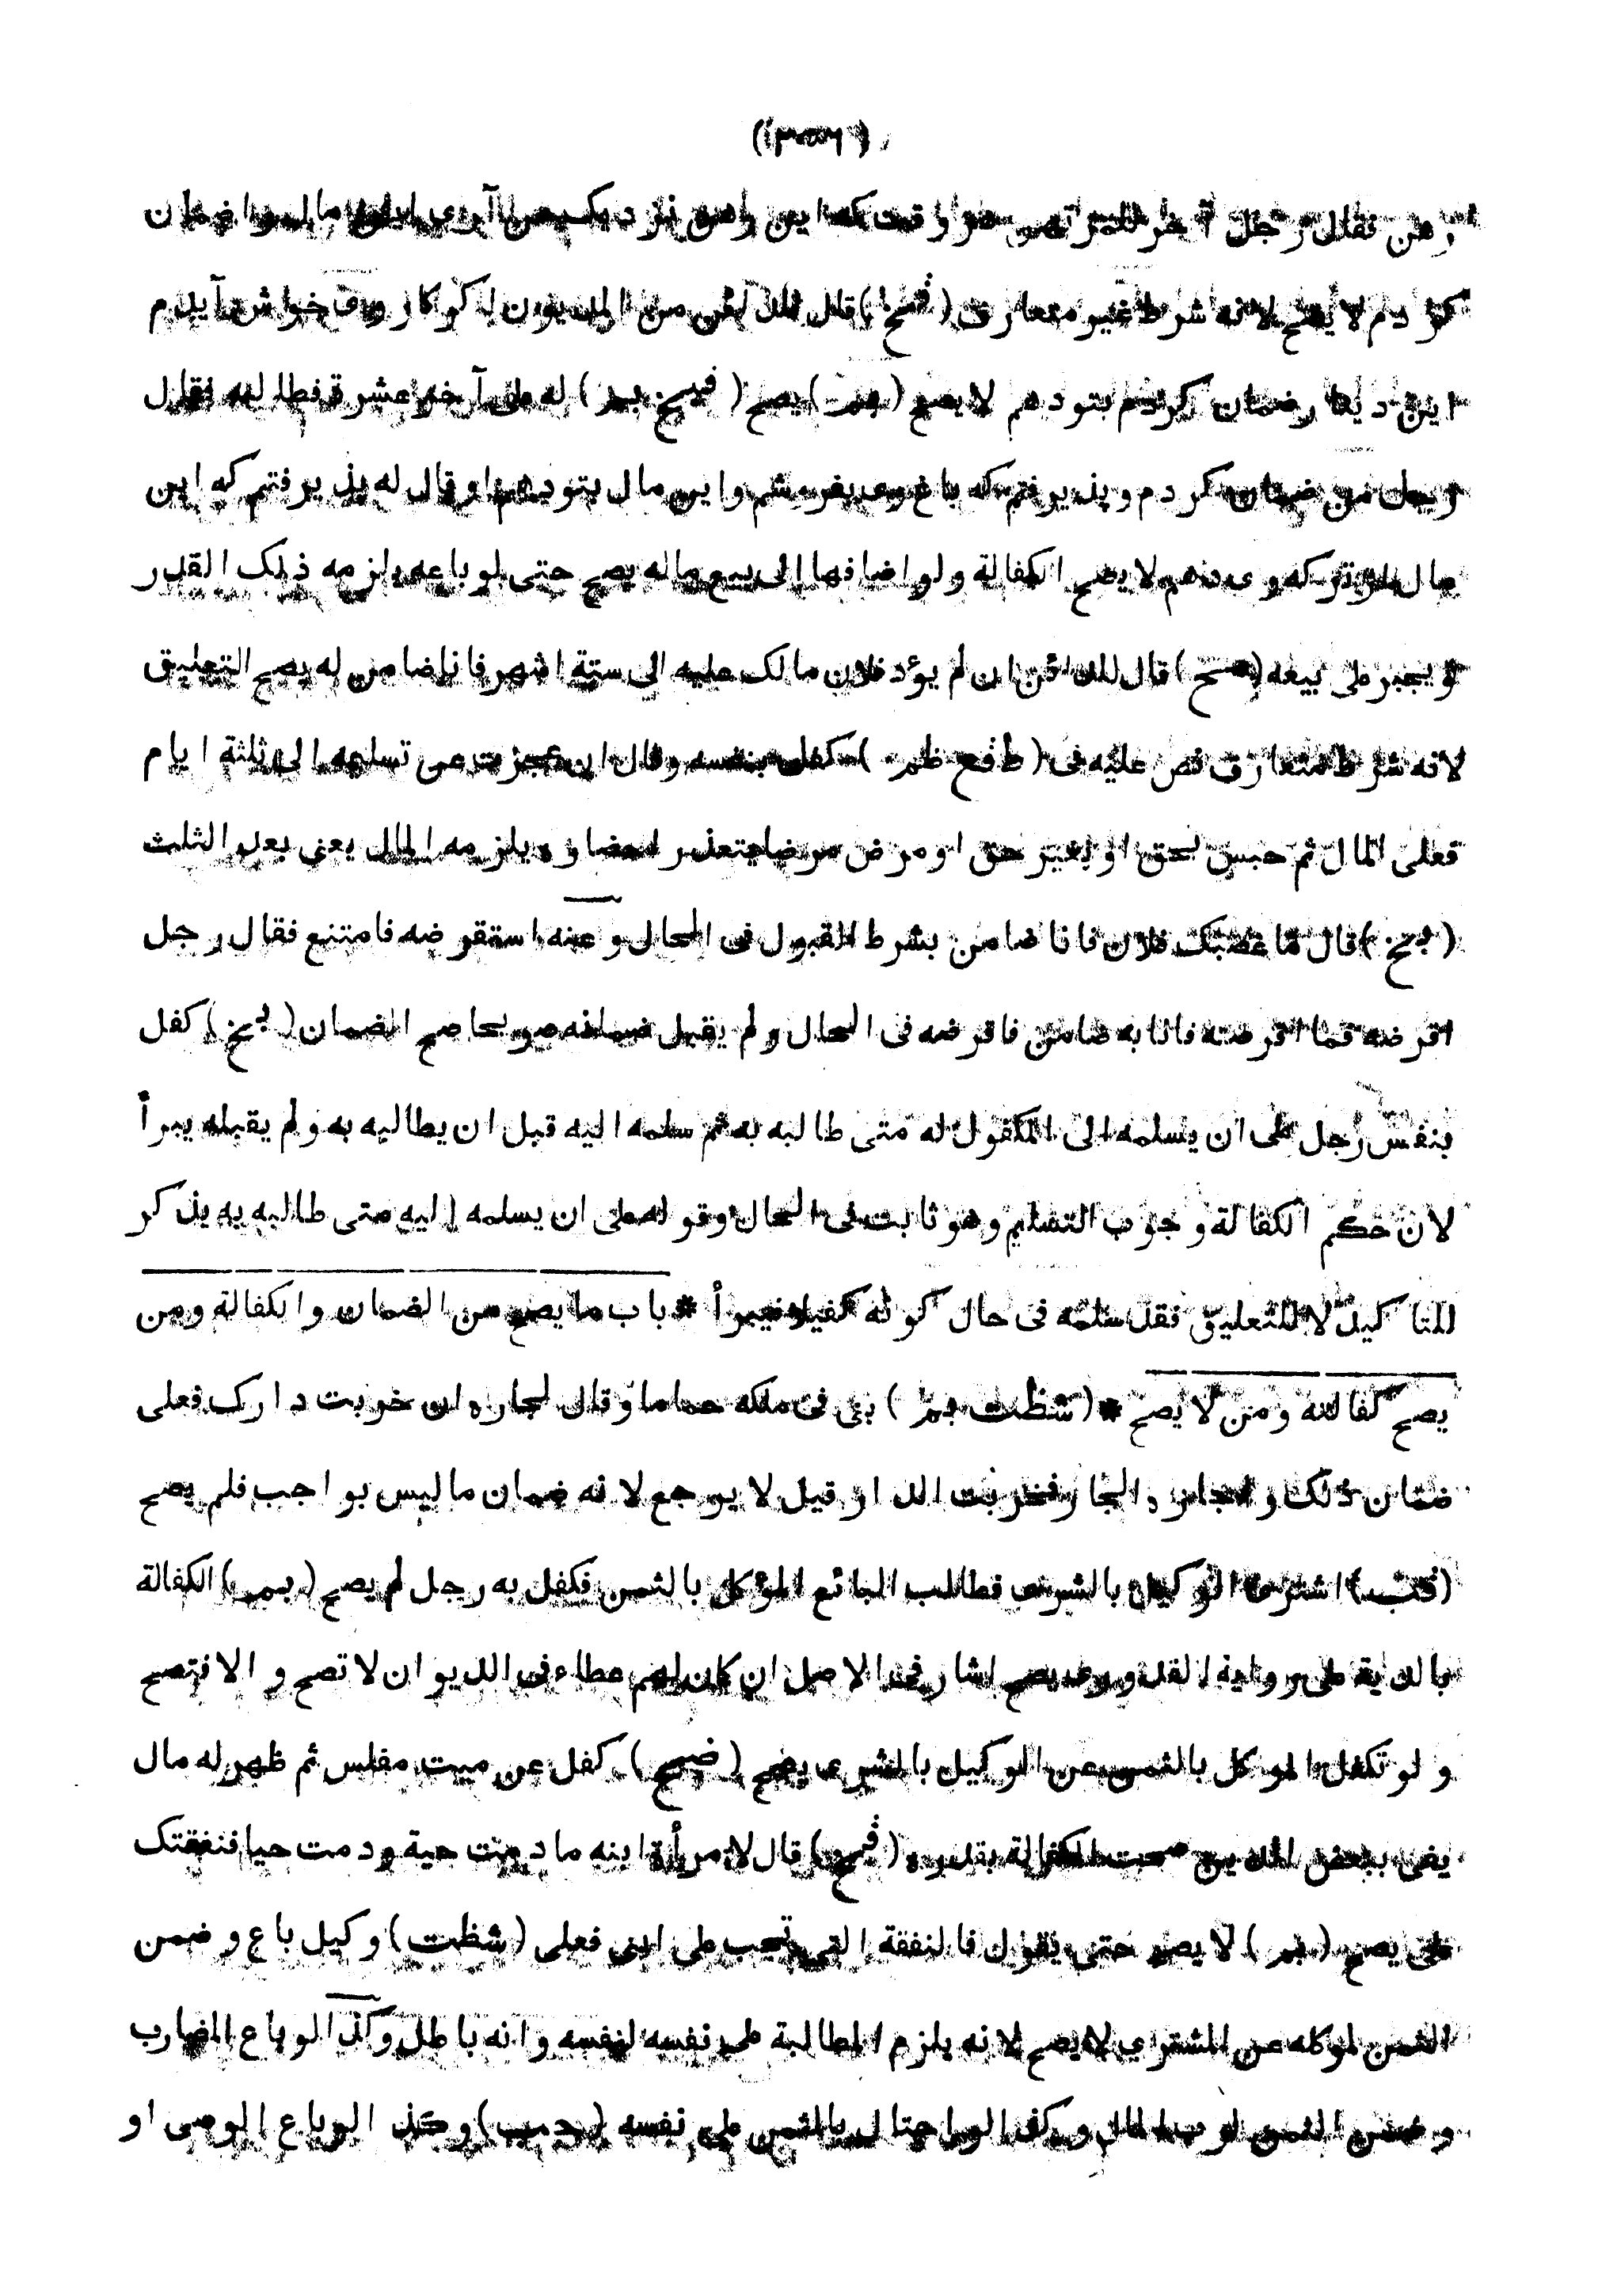 رهن فقال رجل آخر للمرتهن
كردم لا يصح لانه شرط غير متعارف (فمخ) قال للدائن من المديون
اين دينار ضمان كردم بتو دهم لا يصح (بمر) يصح ( ) له على آخر عشرة فطالبه فقال
رجل من ضمان كردم و پذيرفتم كه باغ وى بفروشم و اين مال بتو دهم او قال له پذيرفتم كه اين
مال كه وى دهم لا يصح الكفالة ولو اضافها الى بيع ماله يصح حتى لو باعه يلزمه ذلك القدر
ويجبر على بيعه ( ) قال للدائن ان لم يؤد فلان مالك عليه الى ستة اشهر فانا ضامن له يصح التعليق
لانه شرط متعارف نص عليه فى ( ) كفل بنفسه وقال ان عجزت عن تسليمه الى ثلثة ايام
فعلى المال ثم حبس بحق او بغير حق او مرض مرضا يتعذر احضاره يلزمه المال يعنى بعد الثلث
(بخ) قال ما غصبك فلان فانا ضامن بشرط القبول فى الحال وعنه استقرضه فامتنع فقال رجل
اقرضه فما اقرضته فانا به ضامن فاقرضه فى الحال ولم يقبل ضمانه صريحا صح الضمان (بخ) كفل
بنفس رجل على ان يسلمه الى المكفول له متى طالبه به ثم سلمه اليه قبل ان يطالبه به ولم يقبله يبرأ
لان حكم الكفالة وجوب التسليم وهو ثابت فى الحال وقوله على ان يسلمه اليه متى طالبه به يذكر
للتاكيد لا للتعليق فقد سلمه فى حال كونه كفيلا فيبرأ * باب ما يصح من الضمان والكفالة ومن
يصح كفالته ومن لا يصح * (شظت بمر) بنى فى ملكه حماما وقال لجاره ان خربت دارك فعلى
ضمان ذلك الجار فخربت الدار قيل لا يرجع لانه ضمان ما ليس بواجب فلم يصح
(فتب) اشترى الوكيل بالشرى فطالب البائع الموكل بالثمن فكفل به رجل لم يصح (بمر) الكفالة
بالدية على رواية القدورى يصح اشار فى الاصل ان كان لهم عطاء فى الديوان لا تصح والا فتصح
ولو تكفل الموكل بالثمن عن الوكيل بالشرى يصح (ضح) كفل عن ميت مفلس ثم ظهر له مال
يفى ببعض الدين صحت الكفالة بقدره ( ) قال لامرأة ابنه ما دمت حية ودمت حيا فنفقتك
على يصح (بمر) لا يصح حتى يقول فالنفقة التى تجب على ابنى فعلى (شظت) وكيل باع وضمن
الثمن لموكله عن المشترى لا يصح لانه يلزم المطالبة على نفسه لنفسه وانه باطل وكذا لو باع المضارب
وضمن الثمن لرب المال وكذا لو احتال بالثمن على نفسه ( ) وكذا لو باع الوصى او